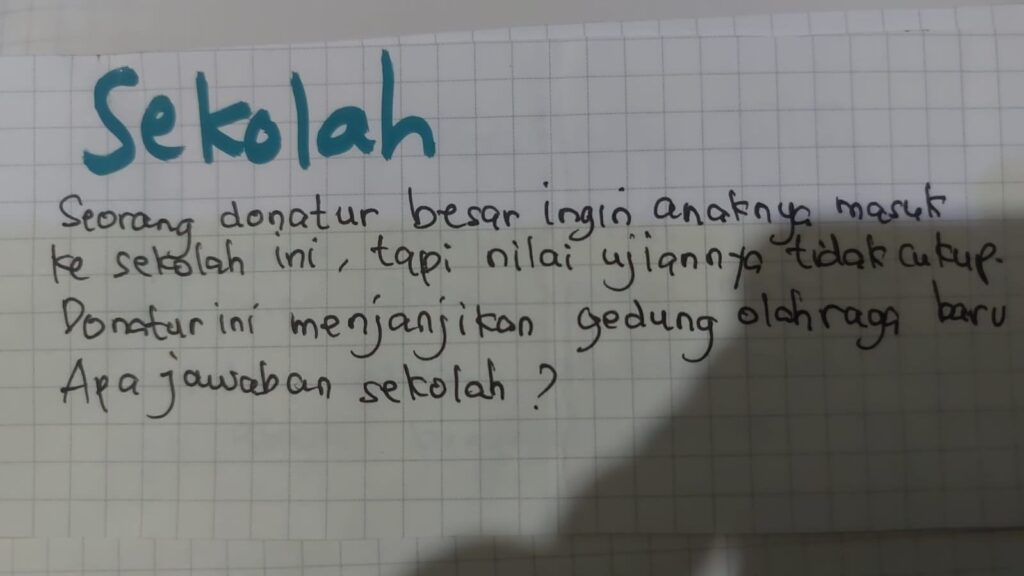 Sekolah
Seorang donatur besar ingin anaknya masuk
ke sekolah ini, tapi nilai ujiannya tidak cukup.
Donatur ini menjanjikan gedung olahraga baru
Apa jawaban sekolah?